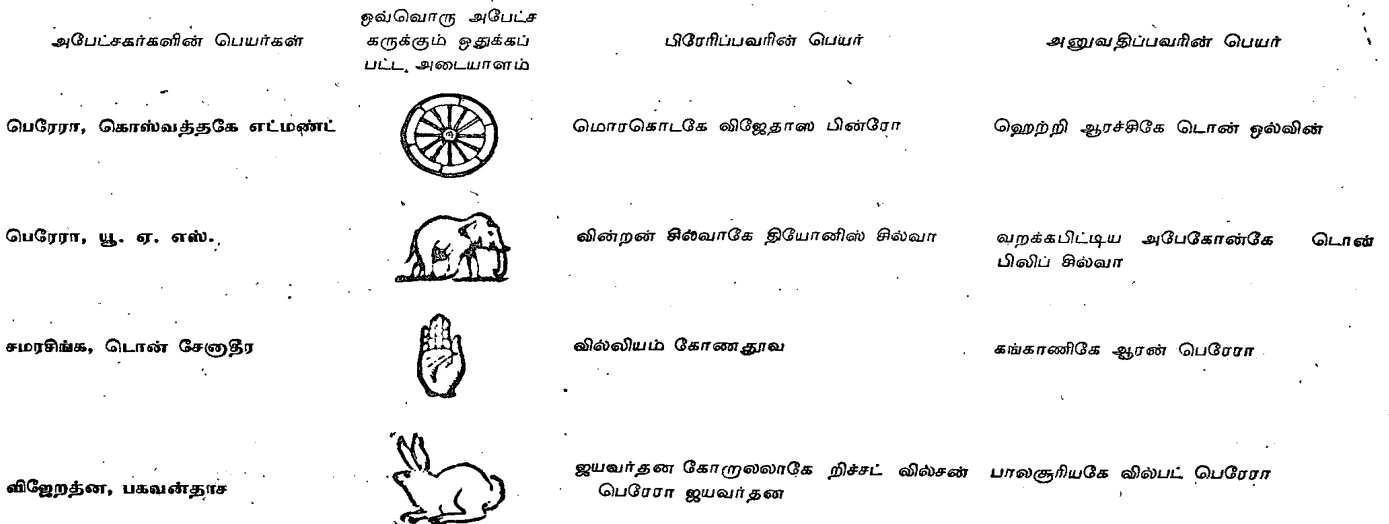 அபேட்சகர்களின் பெயர்கள்
ஒவ்வொரு அபேட்ச
கருக்கும் ஒதுக்கப்
பட்ட அடையாளம்
பிரேரிப்பவரின் பெயர்
அனுவதிப்பவரின் பெயர்
பெரேரா, கொஸ்வத்தகே எட்மண்ட்
மொரகொடகே விஜேதாஸ பின்ரோ
ஹெற்றி ஆரச்சிகே டொன் ஒல்வின்
பெரேரா, யூ. ஏ. எஸ்.
வின்றன் சில்வாகே தியோனிஸ் சில்வா
வறக்கபிட்டிய அபேகோன்கே டொன்
பிலிப் சில்வா
சமரசிங்க, டொன் சேனாதீர
வில்லியம் கோணதூவ
கங்காணிகே ஆரன் பெரேரா
விஜேறத்ன, பகவன்தாச
ஜயவர்தன கோறாலலாகே றிச்சட் வில்சன்
பெரேரா ஜயவர்தன
பாலசூரியகே வில்பட் பெரேரா